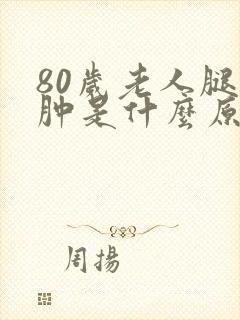 80歲老人腿
肿是什麼原
周揚